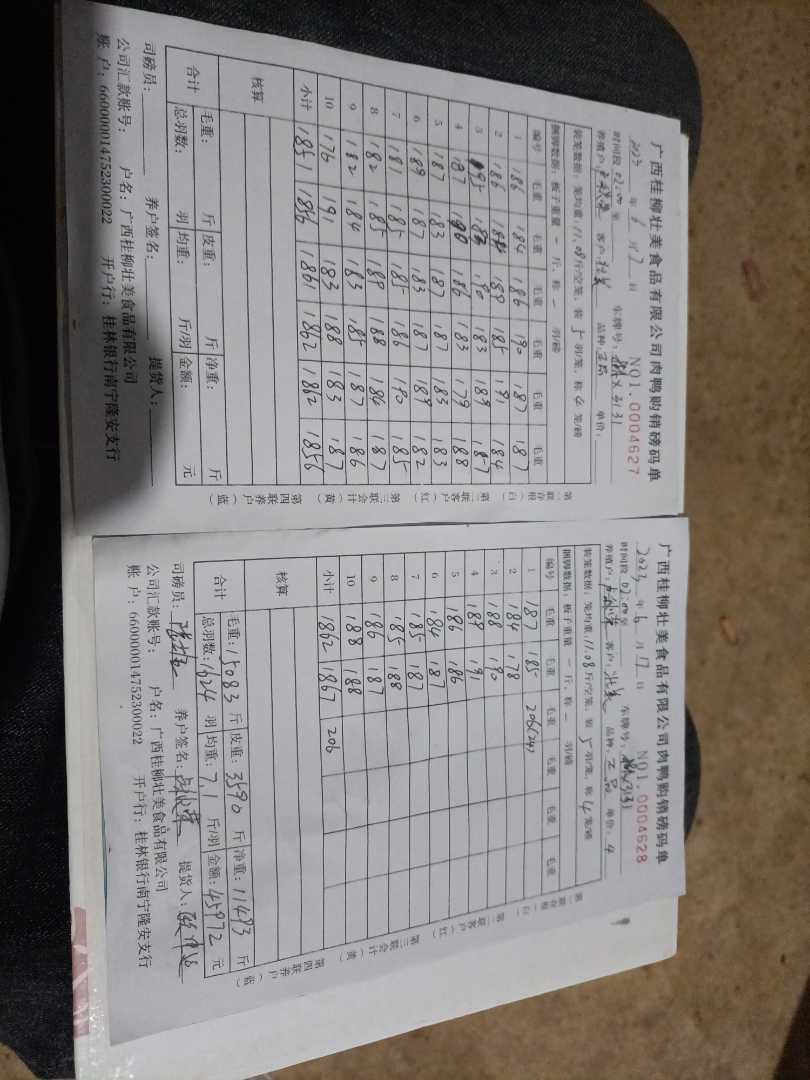 广西桂柳壮美食品有限公司肉鸭购销磅码单
NO1.0004627
2023 年 6 月 17 日
时间段 02:00 至 车牌号: 3131
养殖户: 客户: 壮美 品种: 单价:
装笼数据: 笼均重: 11.08 斤/空笼, 装 5 羽/笼, 称 4 笼/磅
捆脚数据: 板子重量 一 斤, 称 一 羽/磅
编号 毛重 毛重 毛重 毛重 毛重 毛重
1 186 184 186 190 187 187
2 186 184 189 185 191 184
3 195 183 190 183 189 187
4 187 190 186 183 179 188
5 187 183 187 187 185 183
6 189 187 183 187 189 182
7 181 185 185 186 190 185
8 182 185 189 188 184 187
9 182 184 183 185 187 186
10 176 191 183 188 183 187
小计 1851 1856 1861 1862 1862 1856
核算
合计 毛重: 斤 皮重: 斤 净重: 斤
总羽数: 羽 均重: 斤/羽 金额: 元
司磅员: 养户签名: 提货人:
公司汇款账号: 户名: 广西桂柳壮美食品有限公司
账 户: 660000014752300022 开户行: 桂林银行南宁隆安支行
第一联存根(白) 第二联客户(红) 第三联会计(黄) 第四联养户(蓝)
广西桂柳壮美食品有限公司肉鸭购销磅码单
NO1.0004628
2023 年 6 月 17 日
时间段 02:00 至 车牌号: 3131
养殖户: 客户: 壮美 品种: 单价: 4
装笼数据: 笼均重: 11.08 斤/空笼, 装 5 羽/笼, 称 4 笼/磅
捆脚数据: 板子重量 一 斤, 称 一 羽/磅
编号 毛重 毛重 毛重 毛重 毛重 毛重
1 187 185 206(24)
2 184 178
3 188 190
4 189 191
5 186 186
6 184 187
7 185 187
8 185 188
9 186 187
10 188 188
小计 1862 1867 206
核算
合计 毛重: 15083 斤 皮重: 3590 斤 净重: 11493 斤
总羽数: 1624 羽 均重: 7.1 斤/羽 金额: 45972 元
司磅员: 养户签名: 提货人:
公司汇款账号: 户名: 广西桂柳壮美食品有限公司
账 户: 660000014752300022 开户行: 桂林银行南宁隆安支行
第一联存根(白) 第二联客户(红) 第三联会计(黄) 第四联养户(蓝)